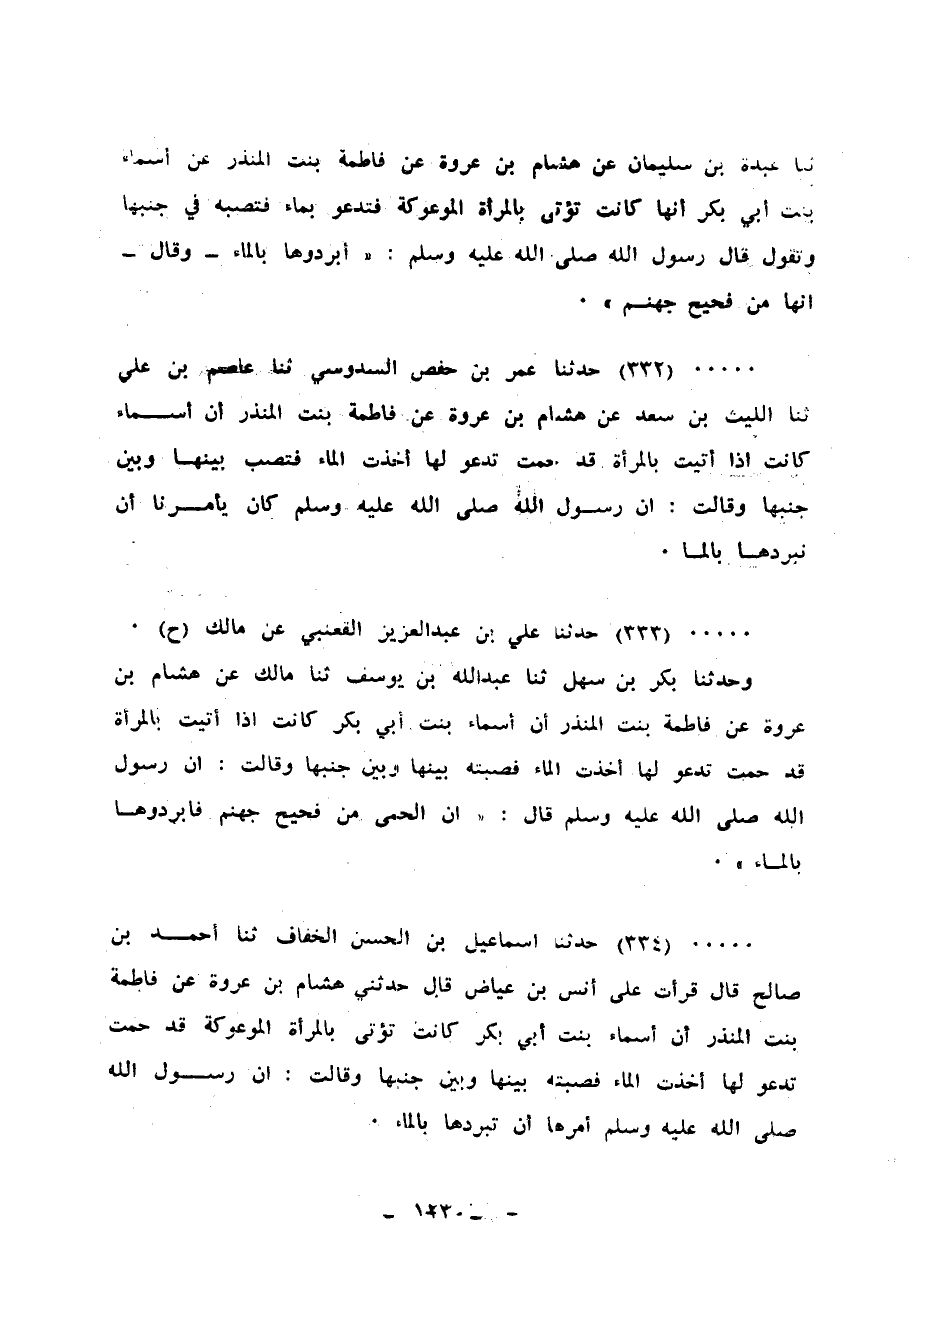 ثنا عبدة بن سليمان عن هشام بن عروة عن فاطمة بنت المنذر عن أسماء
بنت أبي بكر أنها كانت تؤتى بالمرأة الموعوكة فتدعو بماء فتصبه في جنبها
وتقول قال رسول الله صلى الله عليه وسلم : « أبردوها بالماء ــ وقال ــ
انها من فحيح جهنم » ٠
٠٠٠٠٠ (٣٣٢) حدثنا عمر بن حفص السدوسي ثنا عاصم بن علي
ثنا الليث بن سعد عن هشام بن عروة عن فاطمة بنت المنذر أن أســـــماء
كانت اذا أتيت بالمرأة قد حمت تدعو لها أخذت الماء فتصب بينهــا وبين
جنبها وقالت : ان رســول الله صلى الله عليه وسلم كان يأمــرنا أن
نبردهــا بالمـا ٠
٠٠٠٠٠ (٣٣٣) حدثنا علي بن عبدالعزيز القعنبي عن مالك (ح) ٠
وحدثنا بكر بن سهل ثنا عبدالله بن يوسف ثنا مالك عن هشام بن
عروة عن فاطمة بنت المنذر أن أسماء بنت أبي بكر كانت اذا أتيت بالمرأة
قد حمت تدعو لها أخذت الماء فصبته بينها وبين جنبها وقالت : ان رسول
الله صلى الله عليه وسلم قال : « ان الحمى من فحيح جهنم فابردوهــا
بالمــاء » ٠
٠٠٠٠٠ (٣٣٤) حدثنا اسماعيل بن الحسن الخفاف ثنا أحمــد بن
صالح قال قرأت على أنس بن عياض قال حدثني هشام بن عروة عن فاطمة
بنت المنذر أن أسماء بنت أبي بكر كانت تؤتى بالمرأة الموعوكة قد حمت
تدعو لها أخذت الماء فصبته بينها وبين جنبها وقالت : ان رســـول الله
صلى الله عليه وسلم أمرها أن تبردها بالماء ٠